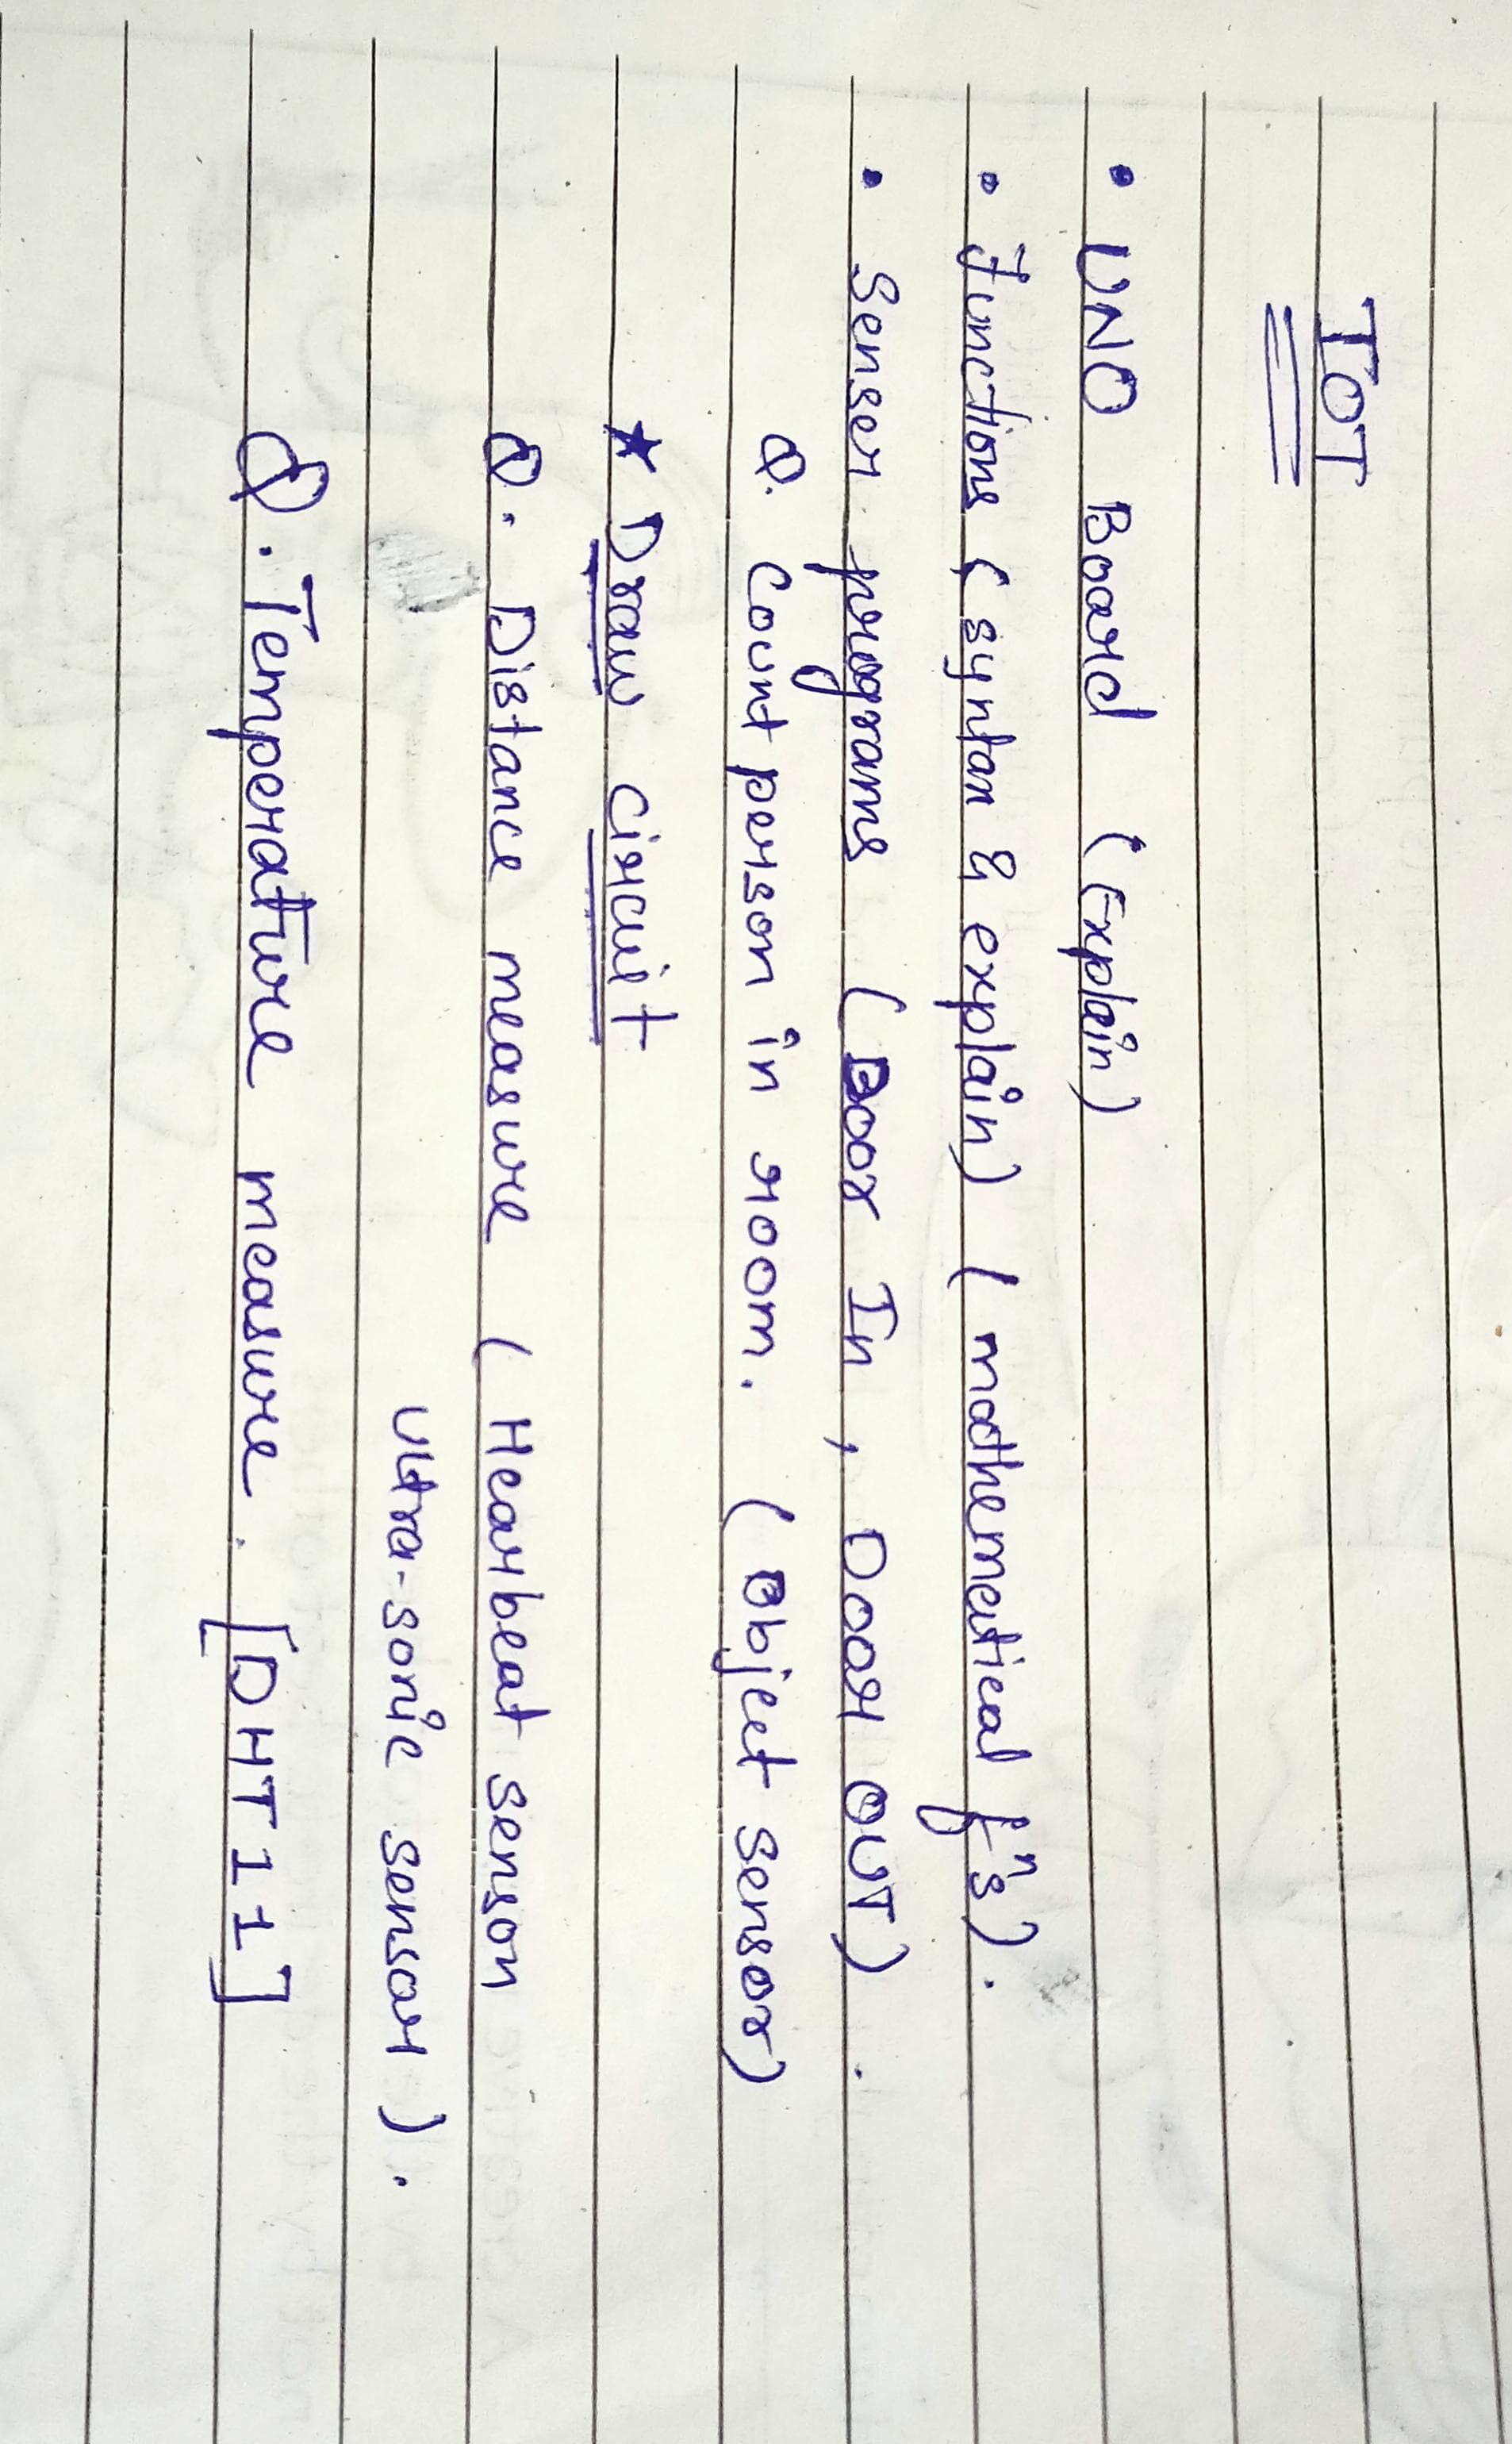 IOT
• UNO Board (Explain)
• Functions (syntax & explain) (mathemetical fⁿs).
• Senser programs (Door In, Door OUT).
Q. Count person in room. (Object sensor)
★ Draw circuit
Q. Distance measure (Hearbeat senson
Ultra-sonic sensor).
Q. Temperature measure. [DHT11]